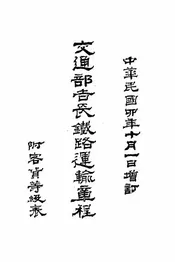 中華民國卯年十月一日增訂
交通部吉長鐵路運輸章程
附客貨等級表